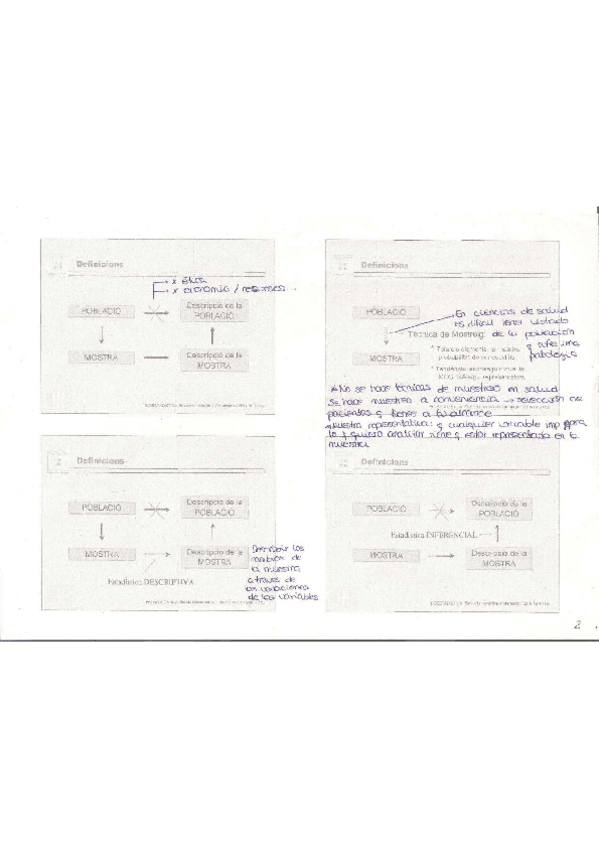 Definicions
x ética
x economía / recursos...
POBLACIÓ
Descripció de la
POBLACIÓ
MOSTRA
Descripció de la
MOSTRA
Definicions
POBLACIÓ
En ciencias de salud
es difícil tener listado
Tècnica de Mostreig: de la población
MOSTRA
patología
* No se hace técnicas de muestreo en salud
Se hace muestreo a conveniencia → selección de
pacientes q tienes a tu alcance
muestra representativa: q cualquier variable imp para
lo q quiero analizar tiene q estar representada en la
muestra
Definicions
POBLACIÓ
Descripció de la
POBLACIÓ
MOSTRA
Descripció de la
MOSTRA
Estadística DESCRIPTIVA
Describir los
de
la muestra
a través de
las variaciones
de las variables
Definicions
POBLACIÓ
Descripció de la
POBLACIÓ
Estadística INFERENCIAL
MOSTRA
Descripció de la
MOSTRA
2